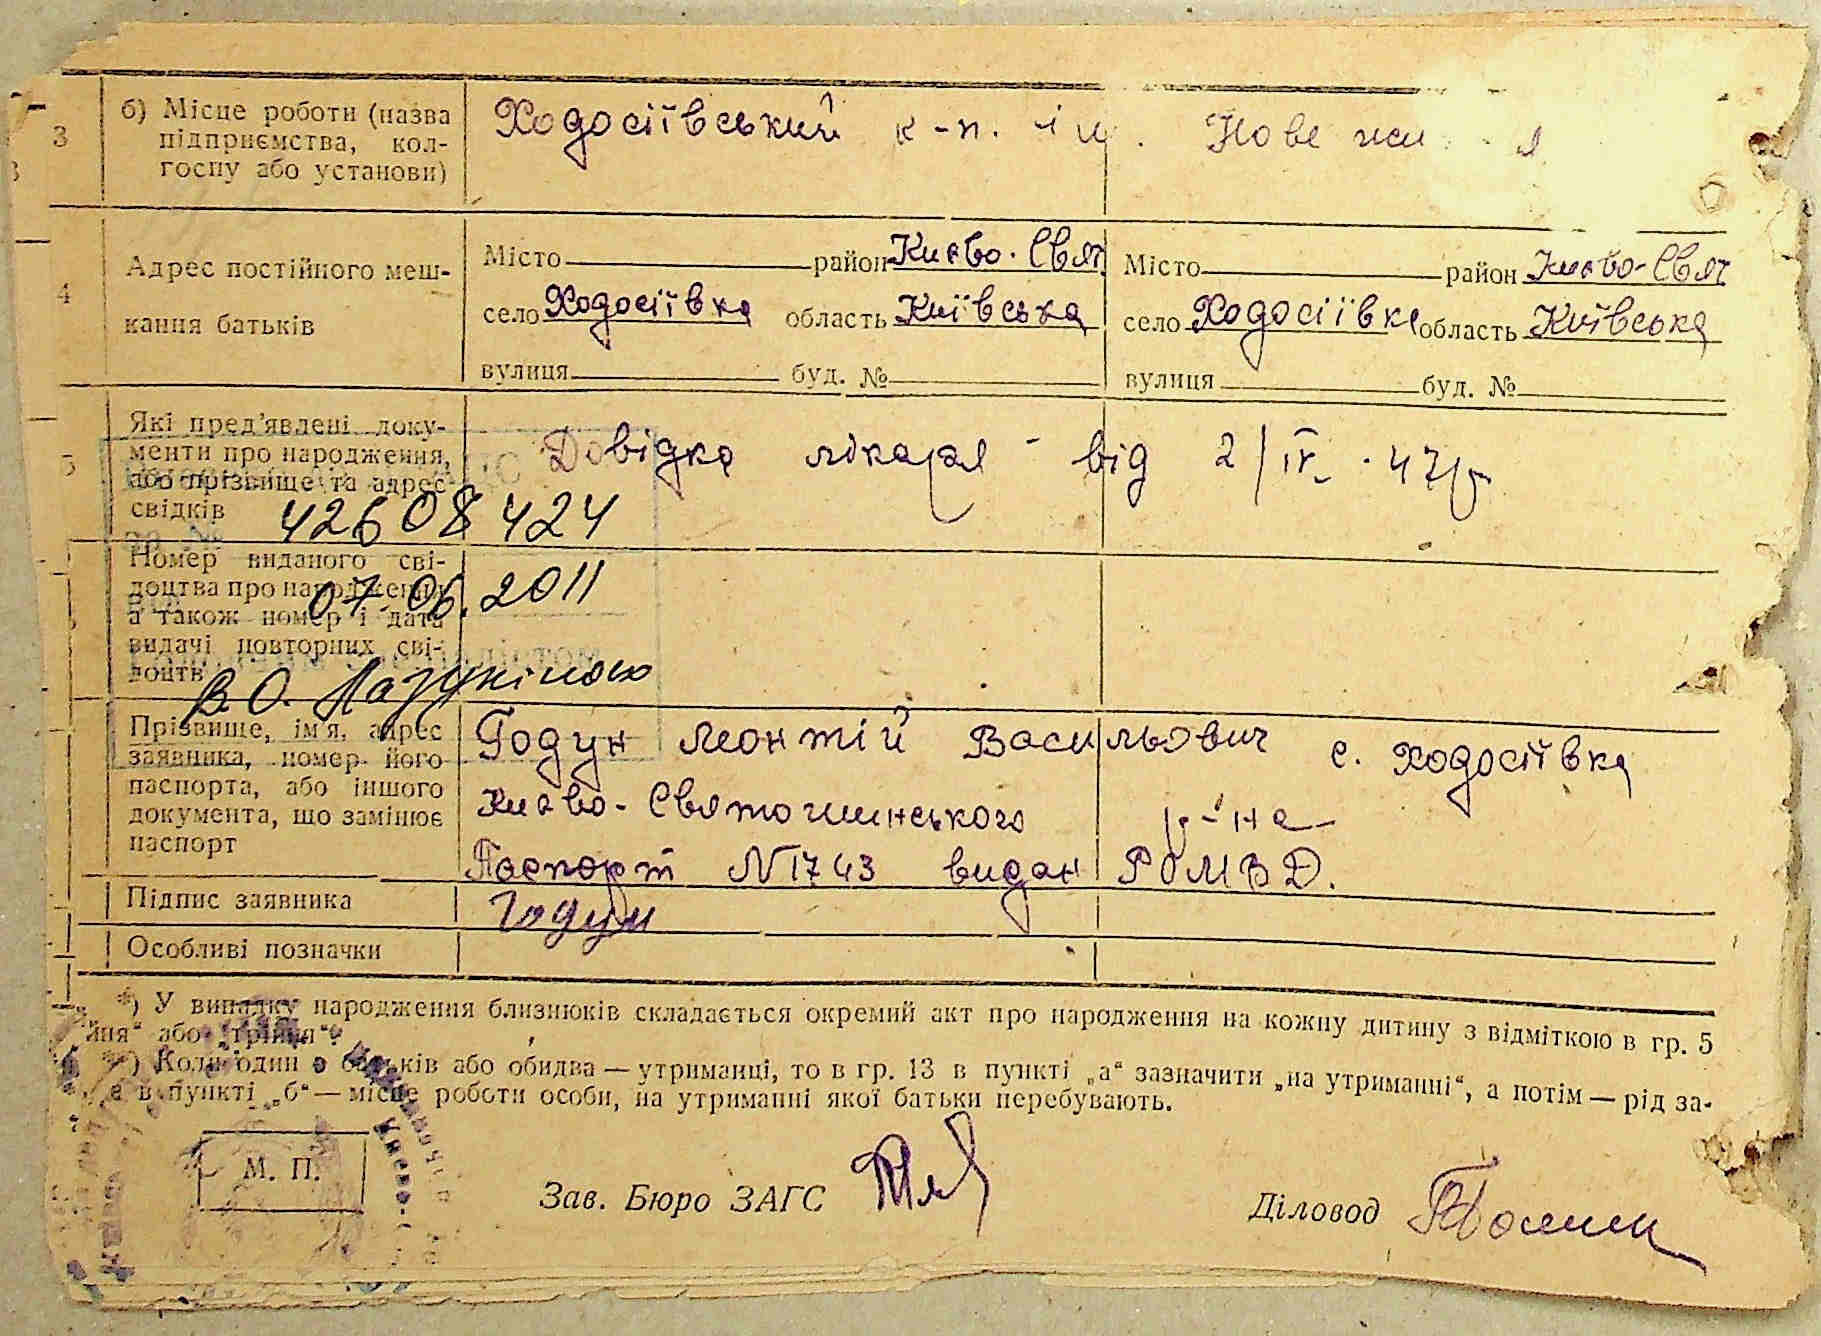 3
б) Місце роботи (назва
підприємства, кол-
госпу або установи)
Ходосіївський к-п. Нове жи я
4
Адрес постійного меш-
кання батьків
Місто район Києво-Свят
село Ходосіївка область Київська
вулиця буд. №
Місто район Києво-Свят
село Ходосіївка область Київська
вулиця буд. №
5
Які пред'явлені доку-
менти про народження,
або прізвище та адрес
свідків
Довідка лікаря від 2/IV-47р
42608424
Номер виданого сві-
доцтва про народження
а також номер і дата
видачі повторних сві-
доцтв
07.06.2011
В.О. Лазукіною
Прізвище, ім'я, адрес
заявника, номер його
паспорта, або іншого
документа, що замінює
паспорт
Годун Леонтій Васильович с. Ходосіївка
Києво-Святошинського р-на
Паспорт N1743 видан РОМВД.
Підпис заявника
Годун
Особливі позначки
*) У випадку народження близнюків складається окремий акт про народження на кожну дитину з відміткою в гр. 5
йня“ або „трійня“.
*) Коли один з батьків або обидва — утриманці, то в гр. 13 в пункті „а“ зазначити „на утриманні“, а потім — рід за-
а в пункті „б“ — місце роботи особи, на утриманні якої батьки перебувають.
М. П.
Зав. Бюро ЗАГС
Діловод